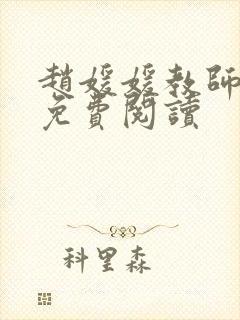 趙媛媛教師
免費閱讀
科里森